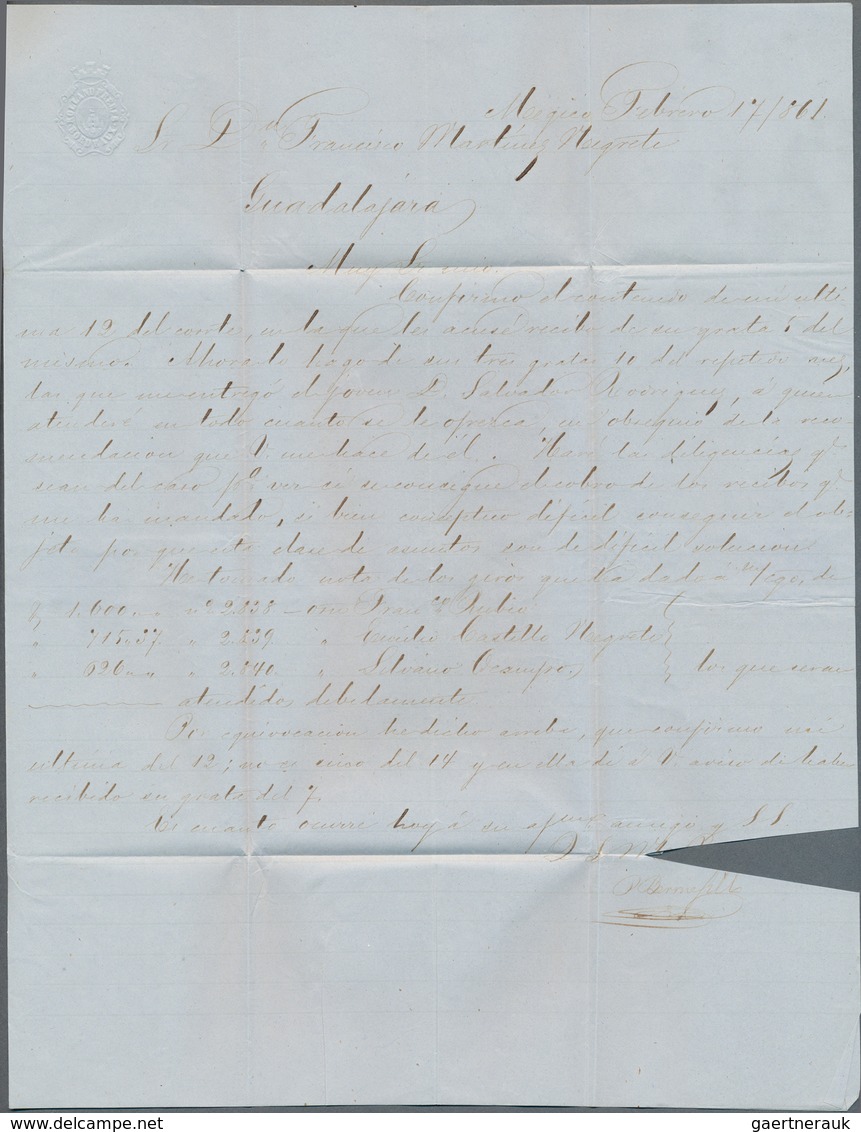 Mégico Febrero 17/861.
Sr Dn Francisco Martinez Negrete
Guadalajara
Muy Sr mio.
Confirmo el contenido de mi ulti
ma 12 del corte, en la que le acusé recibo de su grata 5 del
mismo. Ahora lo hago de sus tres gratas 10 del repetido mes,
las que me entregó el joven D. Salvador Rodriguez, á quien
atenderé en todo cuanto se le ofrezca, en obsequio de la reco-
mendacion que V. me hace de él. Haré las diligencias qe
sean del caso pa ver si se consigue el cobro de los recibos qe
me ha mandado, si bien conceptuo dificil conseguir el ob-
jeto por que esta clase de asuntos son de dificil solucion
He tomado nota de los giros que ha dado á m/cgo, de
$ 1.600.. nº 2.838 - orn Franco Rubio
" 715.37 " 2.839. " Emilio Castillo Negrete
" 626.. " 2.840. " Silviano Ocampo. los que seran
atendidos debidamente.
Por equivocacion he dicho arriba, que confirmo mi
ultima del 12; no es sinco del 14 y en ella dí á V. aviso de haber
recibido su grata del 7.
Es cuanto ocurre hoy á su afmo amigo y S S
Q S M B
gaertnerauk